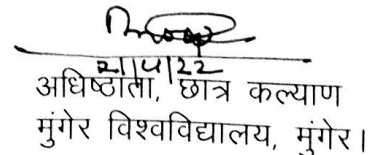 21/4/22
अधिष्ठाता, छात्र कल्याण
मुंगेर विश्वविद्यालय, मुंगेर।